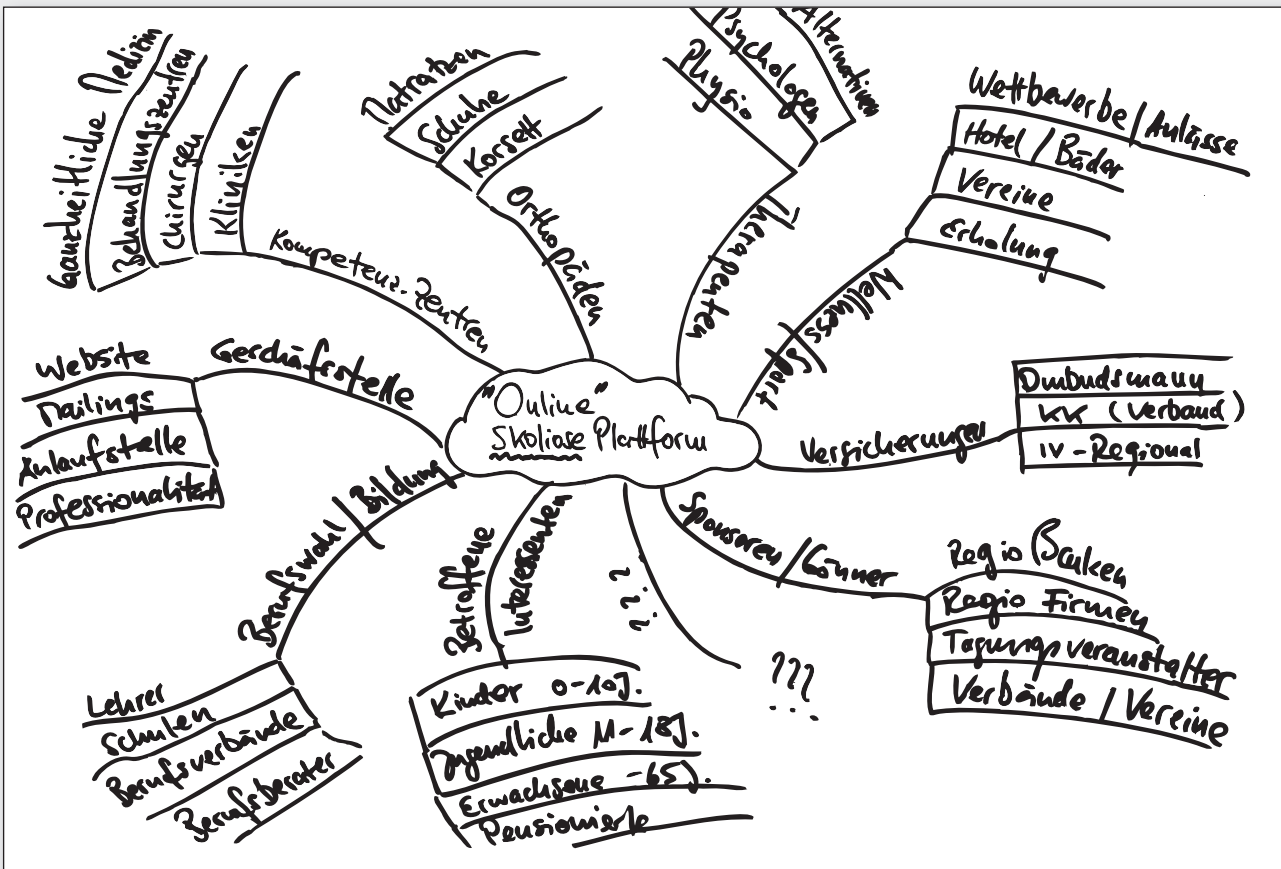 "Online"
Skoliose Plattform
Kompetenz-Zentren
Ganzheitliche Medizin
Behandlungszentren
Chirurgen
Kliniken
Orthopäden
Matratzen
Schuhe
Korsett
Therapeuten
Physio
Psychologen
Alternativen
Wellness / Sport
Wettbewerbe / Anlässe
Hotel / Bäder
Vereine
Erholung
Versicherungen
Ombudsmann
KK (Verband)
IV-Regional
Sponsoren / Gönner
Regio Banken
Regio Firmen
Tagungsveranstalter
Verbände / Vereine
???
Betroffene
Interessenten
Kinder 0-10J.
Jugendliche 11-18J.
Erwachsene -65J.
Pensionierte
Berufswahl / Bildung
Lehrer
Schulen
Berufsverbände
Berufsberater
Geschäfsstelle
Website
Mailings
Anlaufstelle
Professionalität